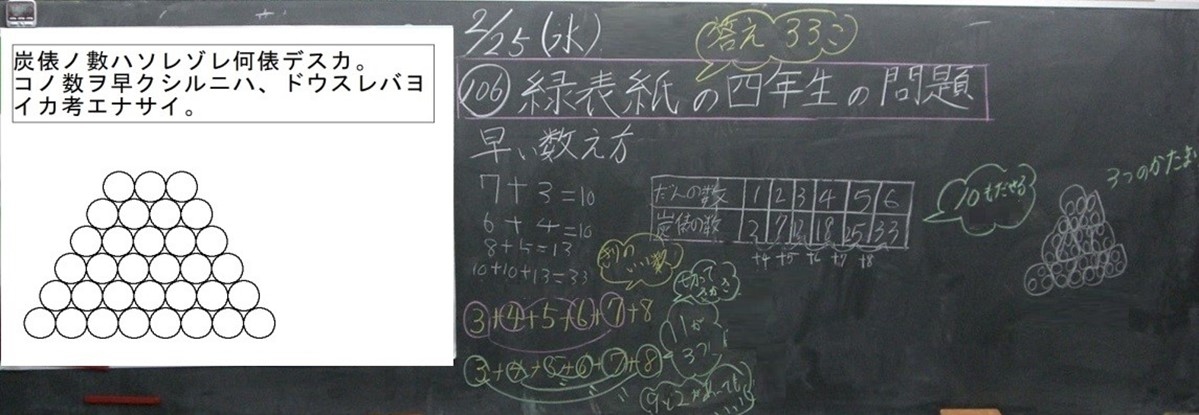 炭俵ノ數ハソレゾレ何俵デスカ。
コノ数ヲ早クシルニハ、ドウスレバヨ
イカ考エナサイ。
2/25(水)
答え 33こ
106 緑表紙の四年生の問題
早い数え方
7+3=10
6+4=10
8+5=13
10+10+13=33
きりのいい数
3+4+5+6+7+8
3+4+5+6+7+8
だんの数 1 2 3 4 5 6
炭俵の数 3 7 12 18 25 33
+4 +5 +6 +7 +8
10もだせる
3つのかたまり
11が
3つ